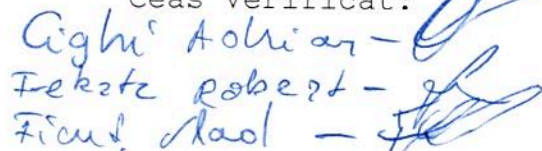 Ceas verificat:
Cighi Adrian -
Fekete Robert -
Ficuț Vlad -